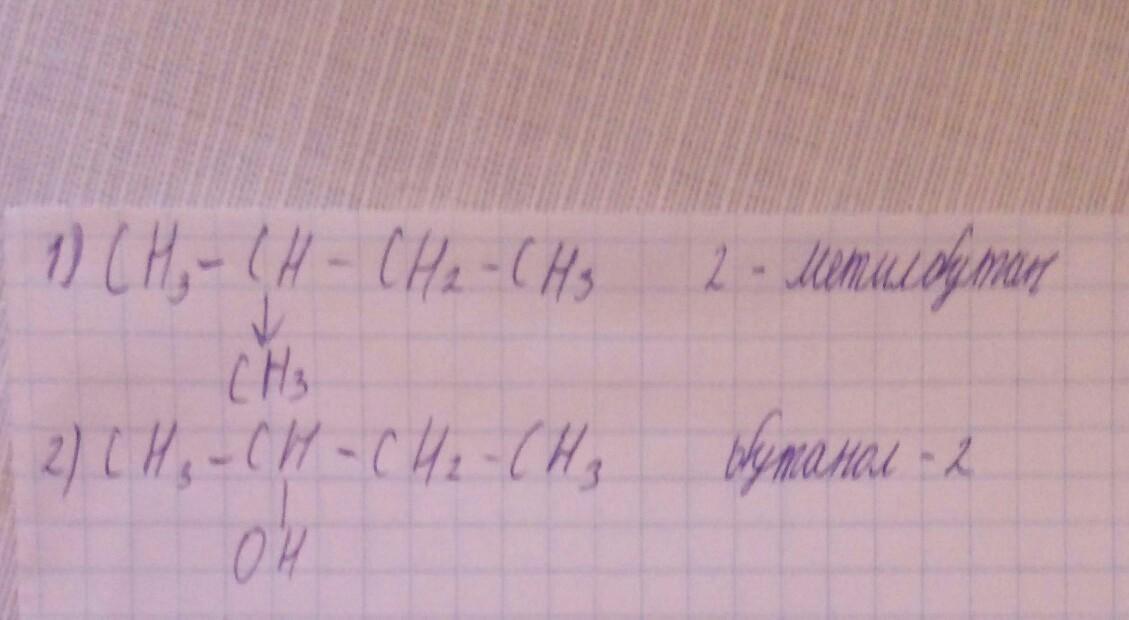 1) CH₃ - CH - CH₂ - CH₃ 2 - метилбутан
↓
CH₃
2) CH₃ - CH - CH₂ - CH₃ бутанол - 2
|
OH